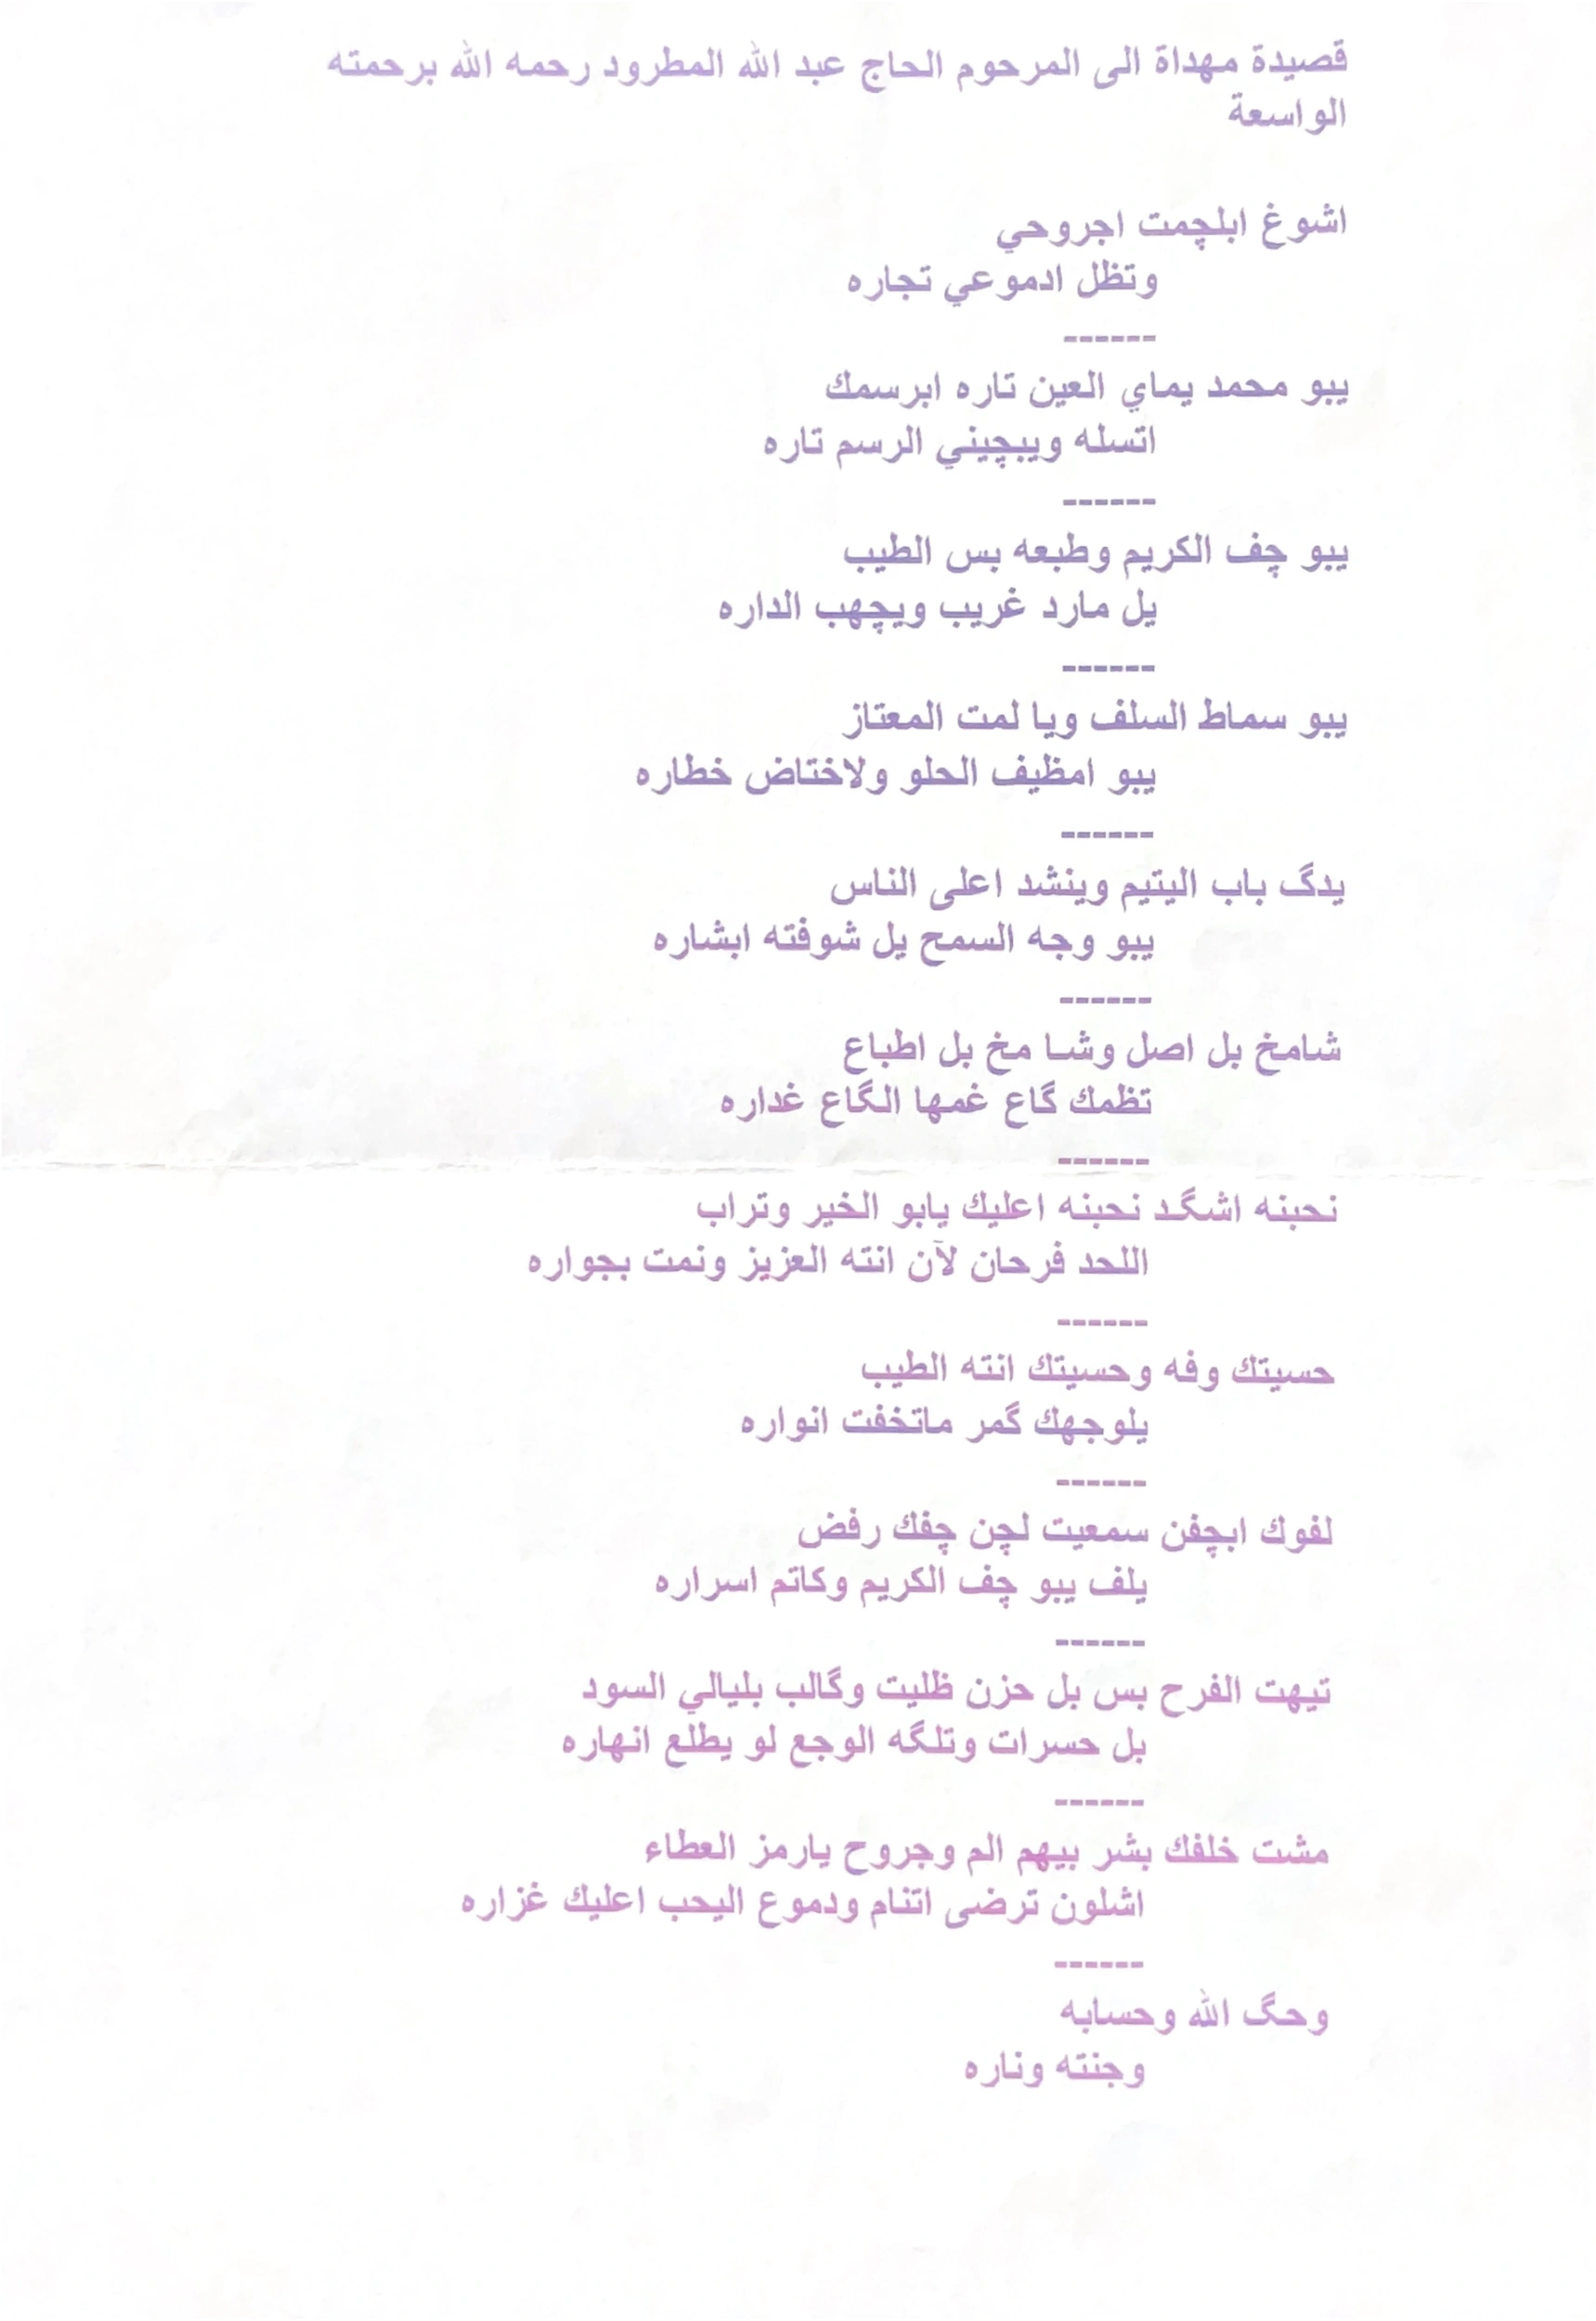 قصيدة مهداة الى المرحوم الحاج عبد الله المطرود رحمه الله برحمته
الواسعة
اشوغ ابلچمت اجروحي
وتظل ادموعي تجاره
------
يبو محمد يماي العين تاره ابرسمك
اتسله ويبچيني الرسم تاره
------
يبو چف الكريم وطبعه بس الطيب
يل مارد غريب ويچهب الداره
------
يبو سماط السلف ويا لمت المعتاز
يبو امظيف الحلو ولاختاض خطاره
------
يدگ باب اليتيم وينشد اعلى الناس
يبو وجه السمح يل شوفته ابشاره
------
شامخ بل اصل وشا مخ بل اطباع
تظمك گاع غمها الگاع غداره
------
نحبنه اشگد نحبنه اعليك يابو الخير وتراب
اللحد فرحان لآن انته العزيز ونمت بجواره
------
حسيتك وفه وحسيتك انته الطيب
يلوجهك گمر ماتخفت انواره
------
لفوك ابچفن سمعيت لچن چفك رفض
يلف يبو چف الكريم وكاتم اسراره
------
تيهت الفرح بس بل حزن ظليت وگالب بليالي السود
بل حسرات وتلگه الوجع لو يطلع انهاره
------
مشت خلفك بشر بيهم الم وجروح يارمز العطاء
اشلون ترضى اتنام ودموع اليحب اعليك غزاره
------
وحگ الله وحسابه
وجنته وناره